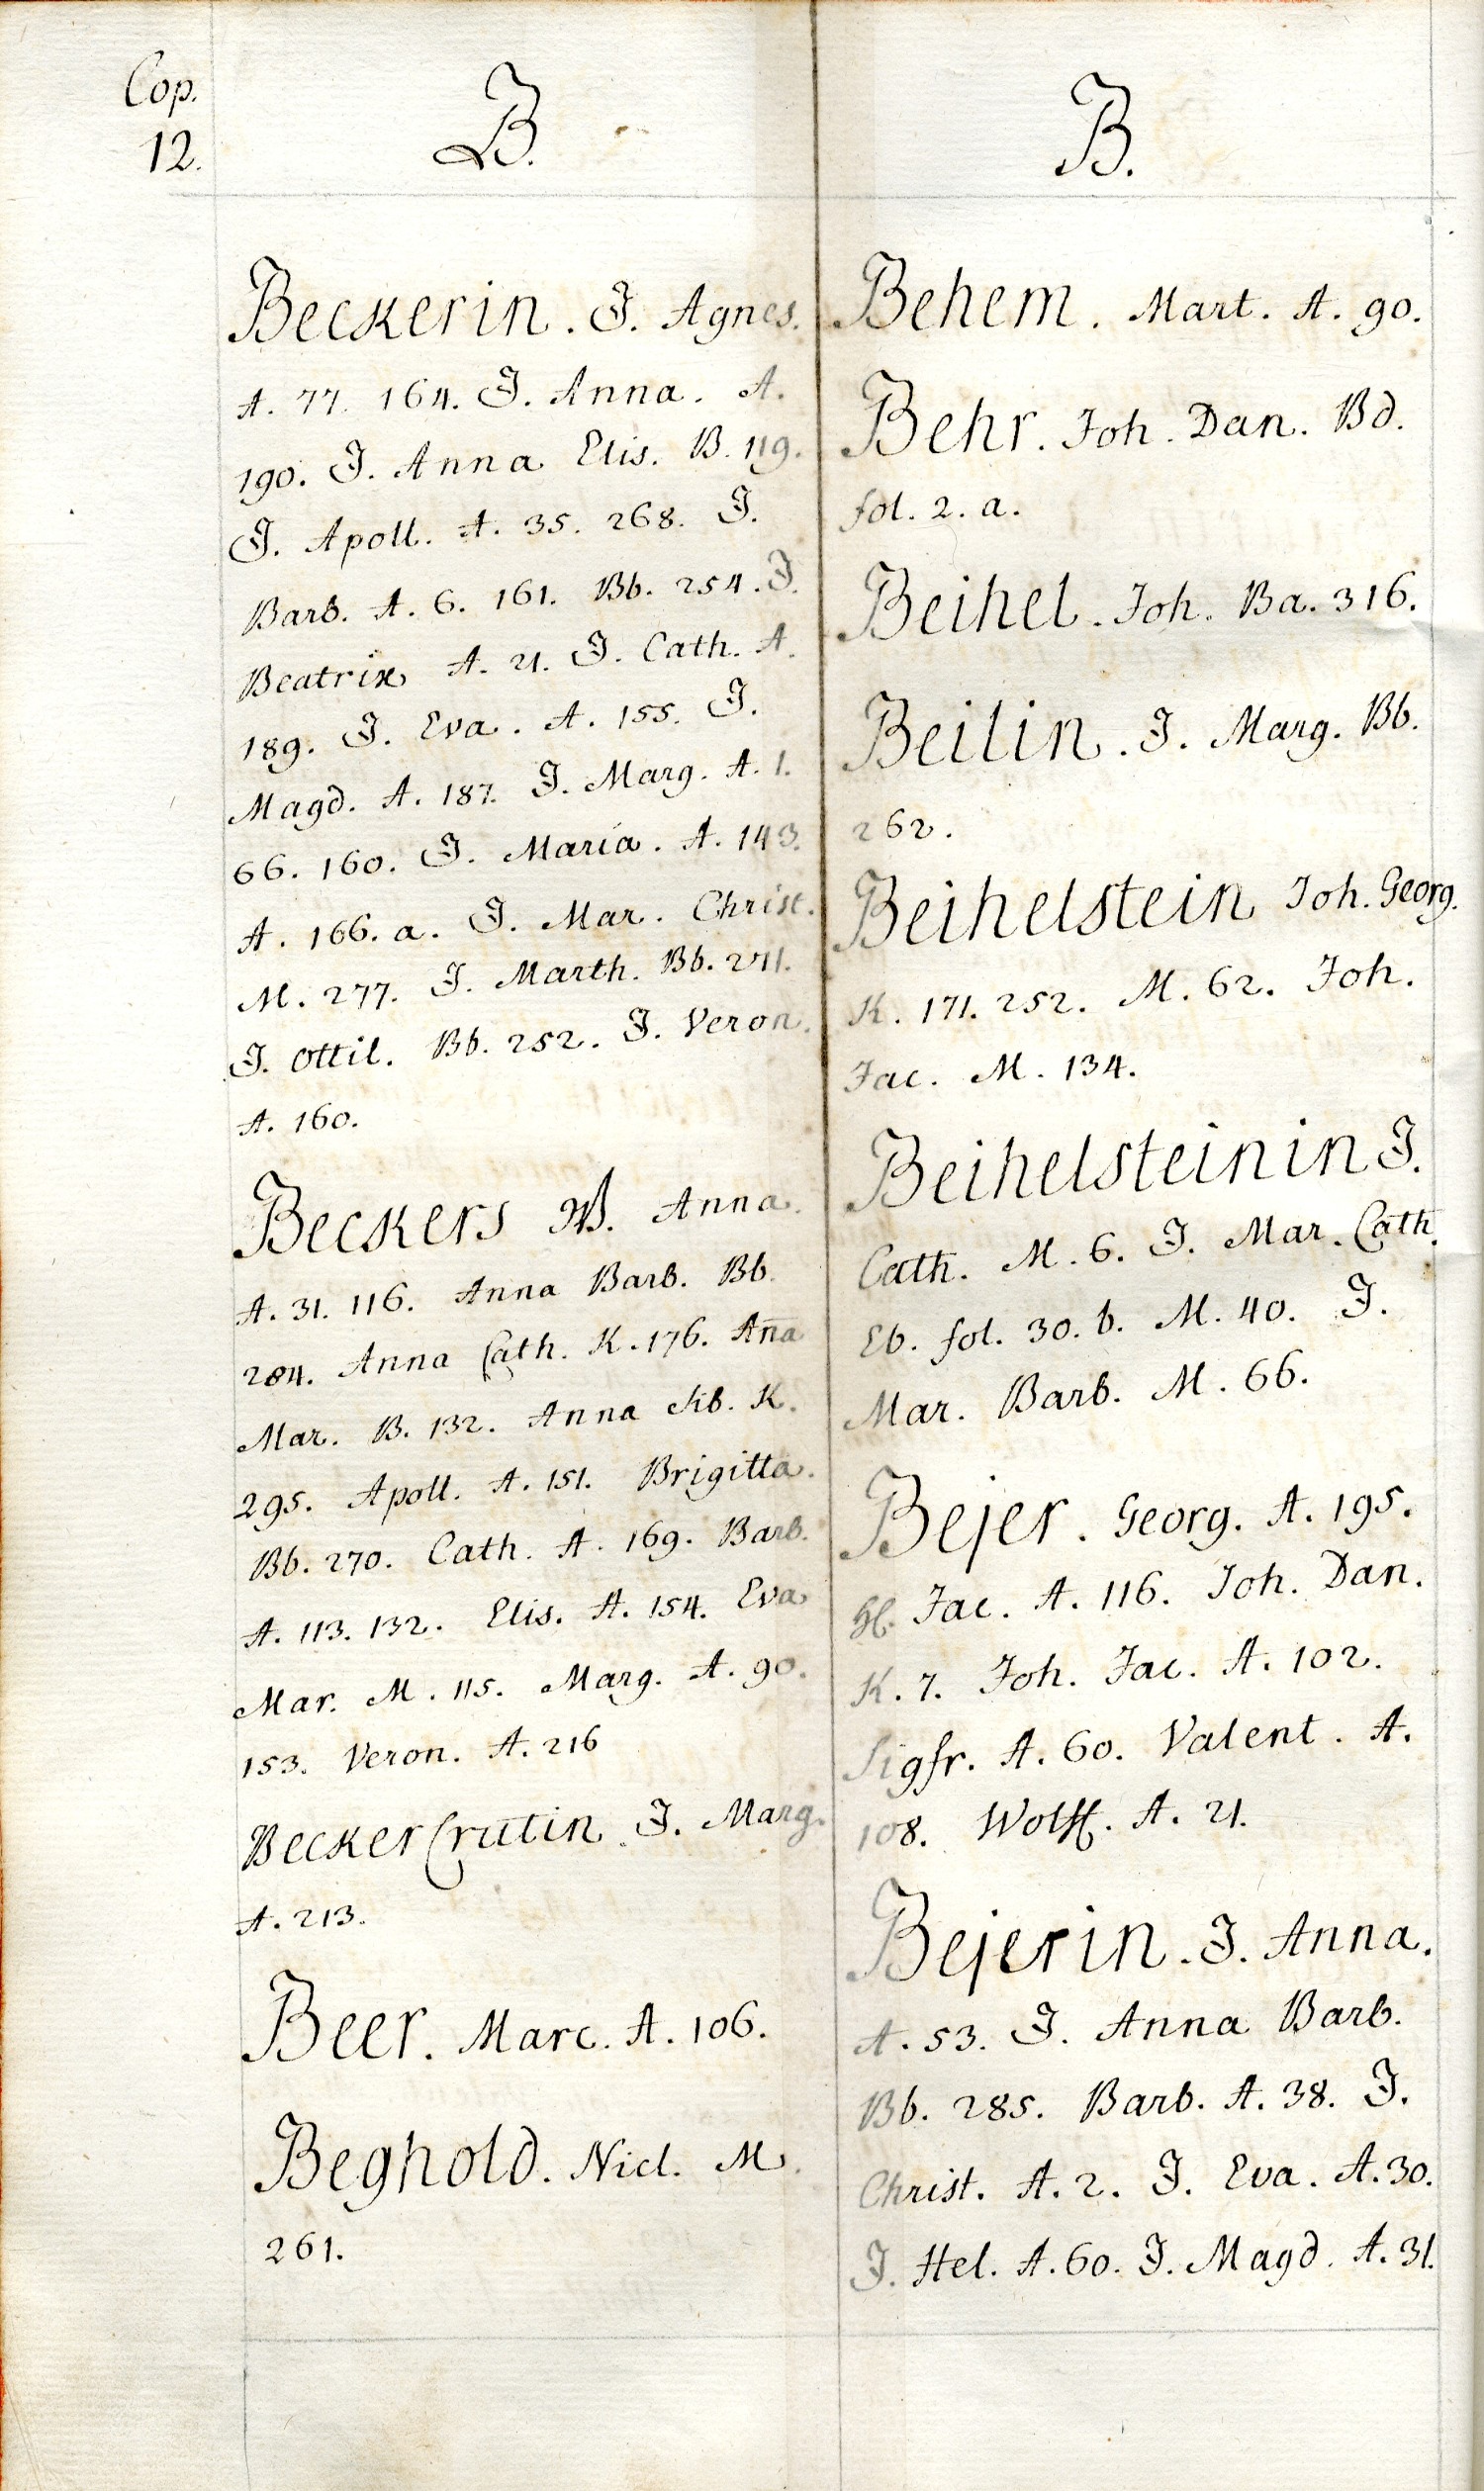 Cop.
12.
B.
Beckerin. J. Agnes.
A. 77. 164. J. Anna. A.
190. J. Anna Elis. B. 119.
J. Apoll. A. 35. 268. J.
Barb. A. 6. 161. Bb. 254. J.
Beatrix A. 21. J. Cath. A.
189. J. Eva. A. 155. J.
Magd. A. 187. J. Marg. A. 1.
66. 160. J. Maria. A. 143.
A. 166. a. J. Mar. Christ.
M. 277. J. Marth. Bb. 271.
J. Ottil. Bb. 252. J. Veron.
A. 160.
Beckers W. Anna.
A. 31. 116. Anna Barb. Bb.
284. Anna Cath. K. 176. Aña
Mar. B. 132. Anna Sib. K.
295. Apoll. A. 151. Brigitta.
Bb. 270. Cath. A. 169. Barb.
A. 113. 132. Elis. A. 154. Eva
Mar. M. 115. Marg. A. 90.
153. Veron. A. 216
Becker Crutin. J. Marg.
A. 213.
Beer. Marc. A. 106.
Beghold. Nicl. M.
261.
B.
Behem. Mart. A. 90.
Behr. Joh. Dan. Bd.
fol. 2. a.
Beihel. Joh. Ba. 316.
Beilin. J. Marg. Bb.
262.
Beihelstein Joh. Georg.
K. 171. 252. M. 62. Joh.
Jac. M. 134.
Beihelsteinin J.
Cath. M. 6. J. Mar. Cath.
Eb. fol. 30. b. M. 40. J.
Mar. Barb. M. 66.
Bejer. Georg. A. 195.
H. Jac. A. 116. Joh. Dan.
K. 7. Joh. Jac. A. 102.
Sigfr. A. 60. Valent. A.
108. Wolff. A. 21.
Bejerin. J. Anna.
A. 53. J. Anna Barb.
Bb. 285. Barb. A. 38. J.
Christ. A. 2. J. Eva. A. 30.
J. Hel. A. 60. J. Magd. A. 31.